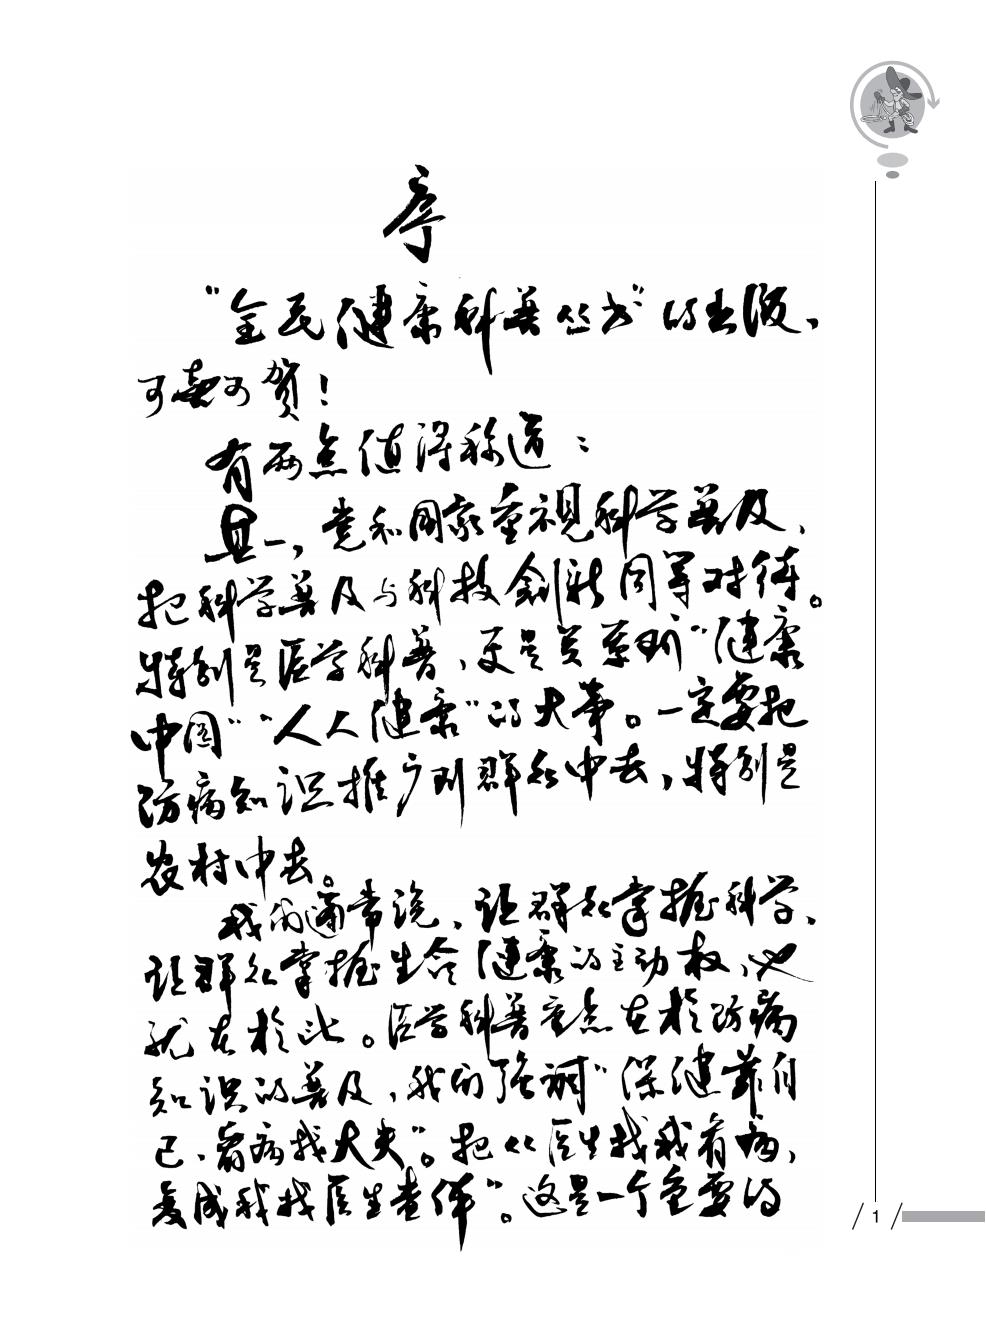 序
“全民健康科普丛书”的出版，
可喜可贺！
有两点值得称道：
其一，党和国家重视科学普及，
把科学普及与科技创新同等对待。
特别是医学科普，更是关系到“健康
中国”“人人健康”的大事。一定要把
防病知识推广到群众中去，特别是
农村中去。
我们通常说，让群众掌握科学，
让群众掌握生命健康的主动权，也
就在于此。医学科普重点在于防病
知识的普及，我们强调“保健靠自
己，看病找大夫”。把“医生找我看病，
变成我找医生查体”。这是一个重要的
1